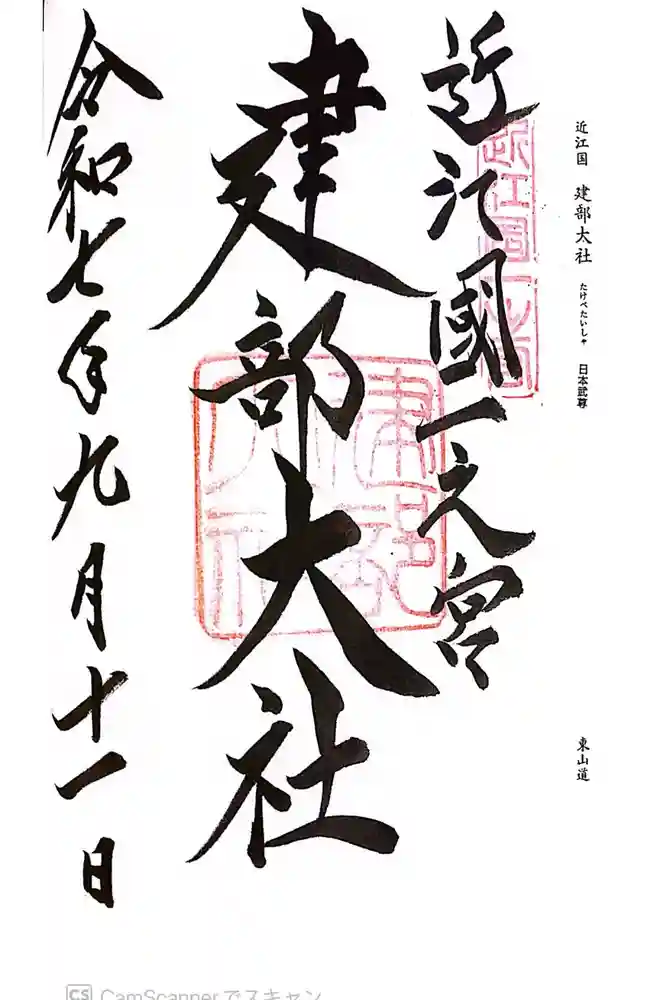 近江国 建部大社 たけべたいしゃ 日本武尊
東山道
近江國一之宮
近江国一之宮
建部大社
建部大社
令和七年九月十一日
CS CamScannerでスキャン